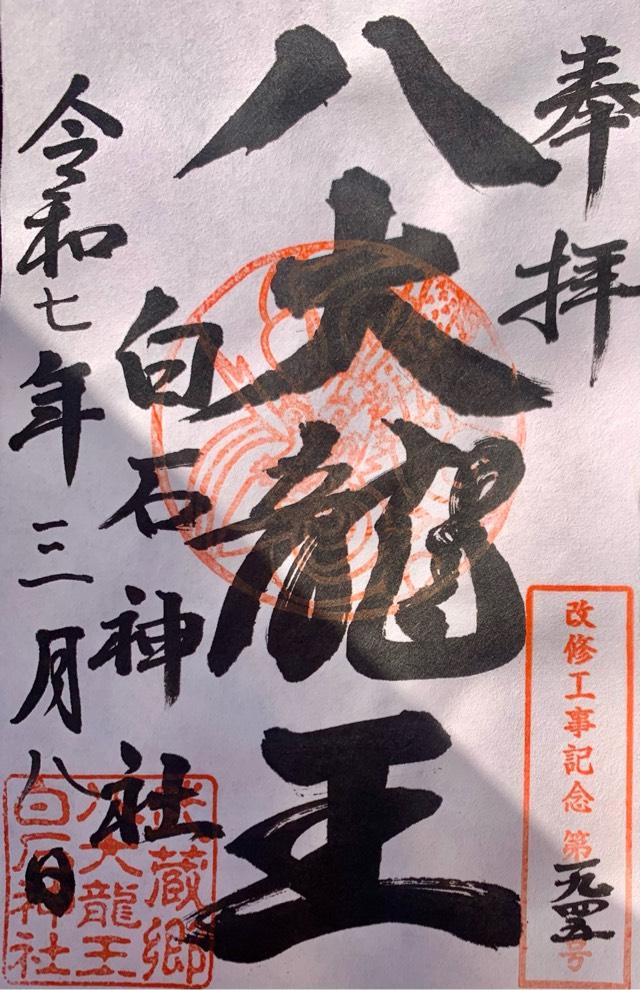 奉拝
八大龍王
白石神社
令和七年三月八日
改修工事記念 第一九四五号
蔵郷
八大龍王
白石神社